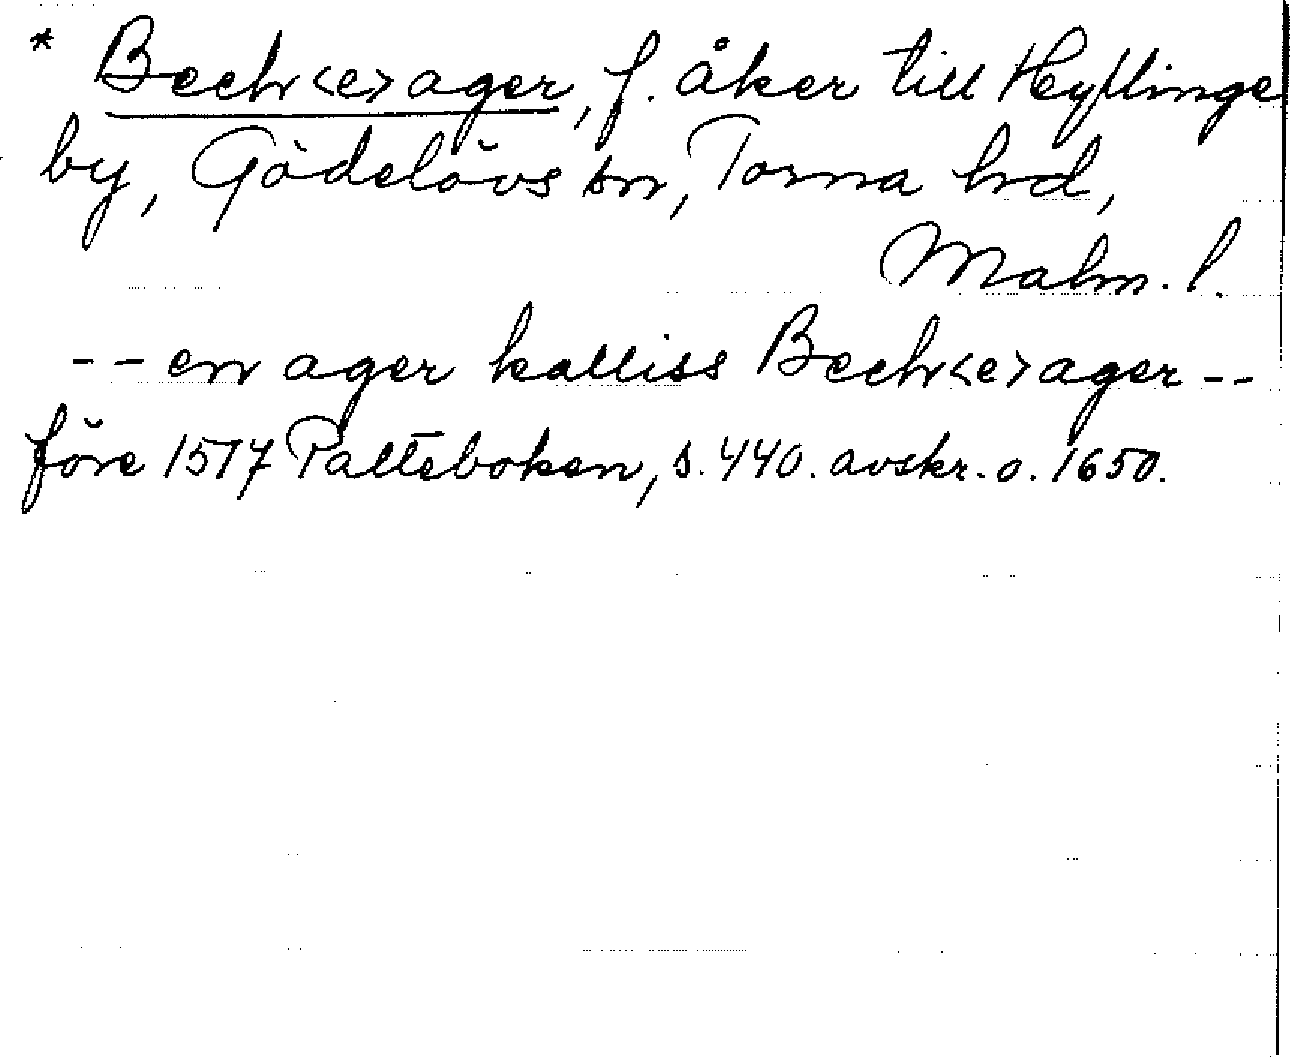 * Bechr<e>ager, f. åker till Hyllinge
by, Gödelövs sn, Torna hrd,
Malm. l.
-- en ager kalliss Bechr<e>ager --
före 1517 Palteboken, s. 440. avskr. o. 1650.